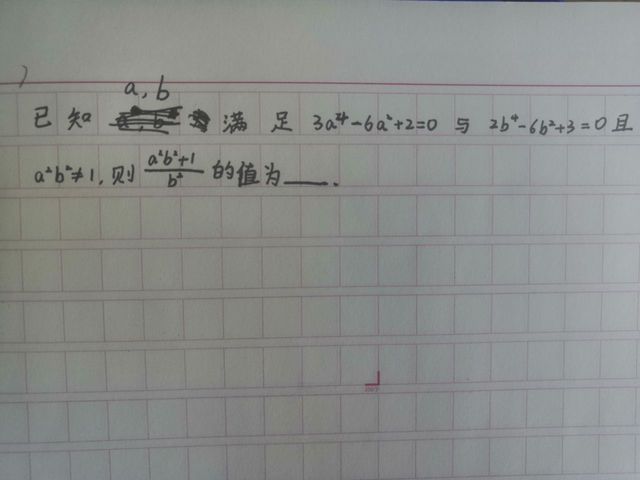 )
a, b
已知 满足 3a⁴-6a²+2=0 与 2b⁴-6b²+3=0 且
a²b²≠1, 则 (a²b²+1)/b² 的值为____.